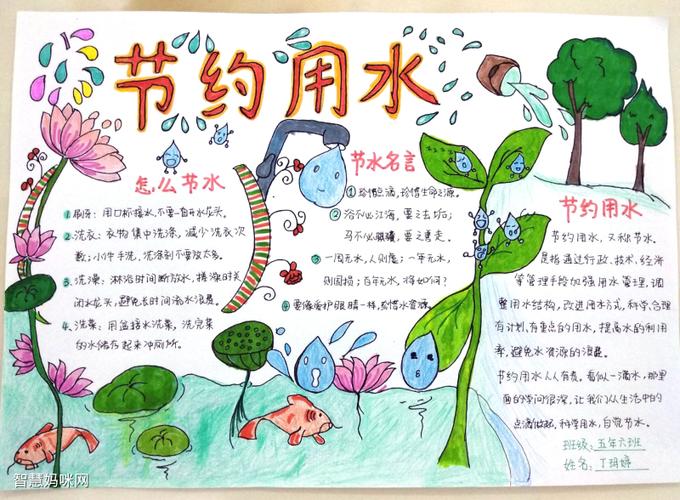 节约用水
怎么节水
1. 刷牙：用口杯接水,不要一直开水龙头。
2. 洗衣：衣物集中洗涤,减少洗衣次
数;小件手洗,洗涤剂不要放太多。
3. 洗澡：淋浴时间断放水,搓澡时关
闭水龙头,避免长时间浴水浪费。
4. 洗菜：用盆接水洗菜,洗完菜
的水储存起来冲厕所。
节水名言
① 珍惜点滴,珍惜生命之源。
② 浴不必江海,要之去垢;
马不必骐骥,要之善走。
③ 一周无水,人则危;一年无水,
则国损;百年无水,将如何?
④ 要像爱护眼睛一样,珍惜水资源。
节约用水
节约用水,又称节水。
是指通过行政、技术、经济
等管理手段加强用水管理,调
整用水结构,改进用水方式,科学、合理
有计划,有重点的用水,提高水的利用
率,避免水资源的浪费。
节约用水人人有责。看似一滴水,那里
面的学问很深,让我们从生活中的
点滴做起,科学用水,自觉节水。
班级：五年六班
姓名：丁玥婷
智慧妈咪网